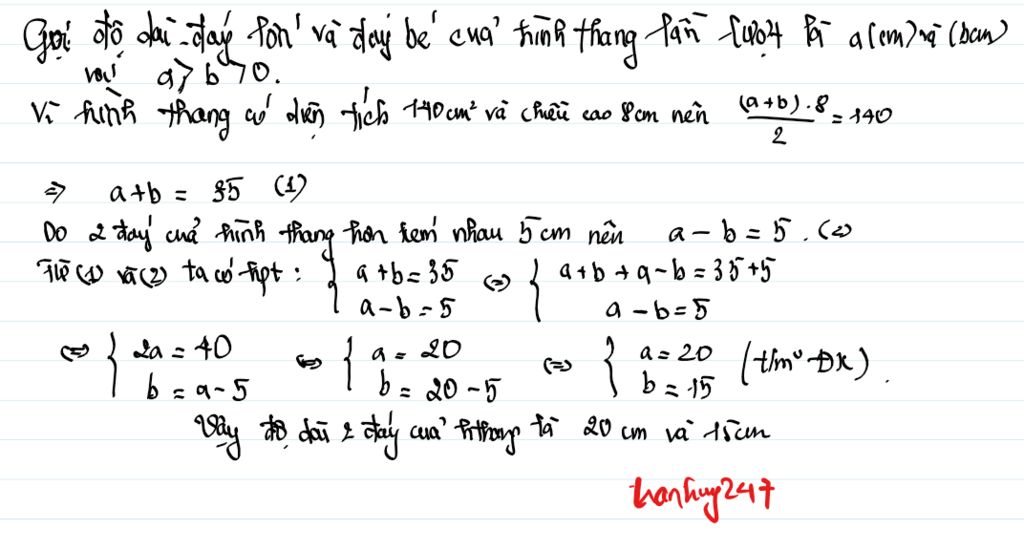 Gọi độ dài đáy lớn và đáy bé của hình thang lần lượt là a(cm) và (bcm)
với a > b > 0.
Vì hình thang có diện tích 140cm² và chiều cao 8cm nên (a+b).8/2 = 140
=> a+b = 35 (1)
Do 2 đáy của hình thang hơn kém nhau 5cm nên a - b = 5. (2)
Từ (1) và (2) ta có hpt: { a+b=35 a-b=5 <=> { a+b+a-b=35+5 a-b=5
<=> { 2a=40 b=a-5 <=> { a=20 b=20-5 <=> { a=20 b=15 (t/m ĐK).
Vậy độ dài 2 đáy của hthang là 20 cm và 15cm
thanhuy247